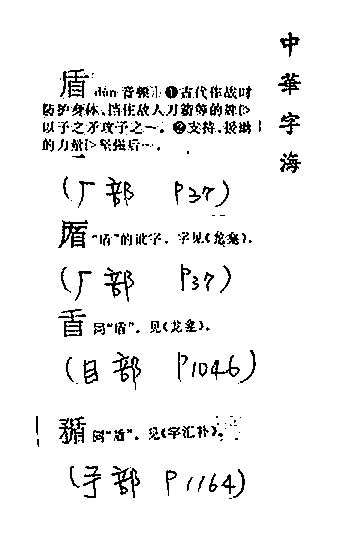 中華字海
盾 dùn 音顿 ❶古代作战时
防护身体、挡住敌人刀箭等的牌▷
以子之矛攻子之～。❷支持、援助
的力量▷坚强后～。
(厂部 P37)
"盾"的讹字。字见《龙龛》。
(厂部 P37)
同"盾"。见《龙龛》。
(目部 P1046)
同"盾"。见《字汇补》。
(矛部 P1164)